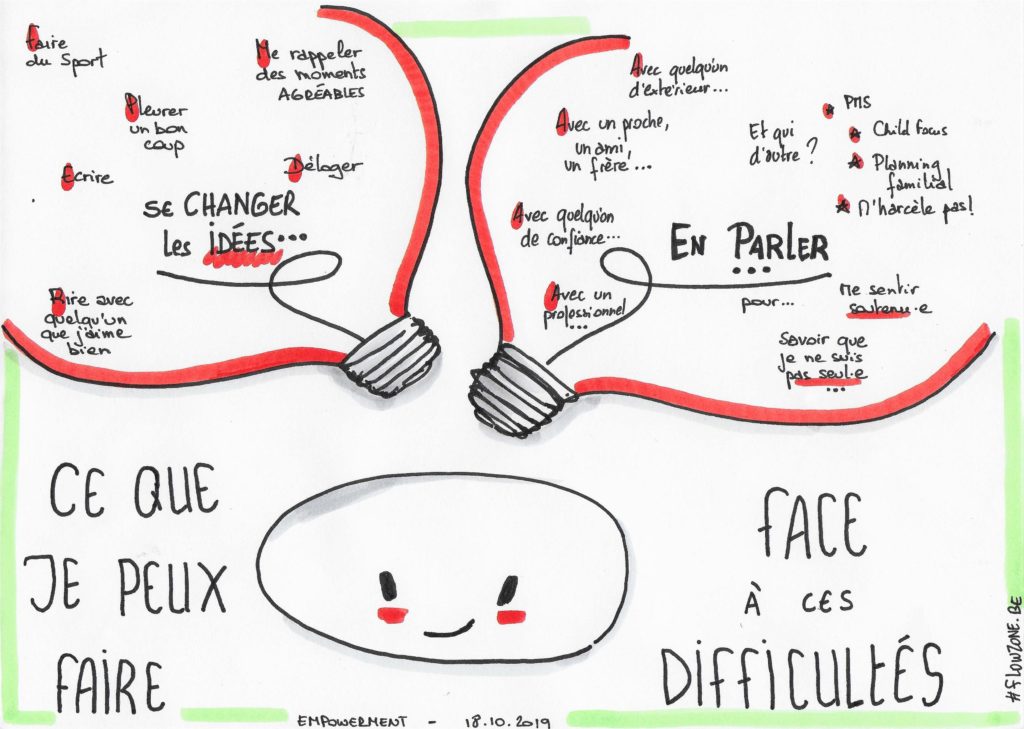 Faire
du Sport
Me rappeler
des moments
AGRÉABLES
Pleurer
un bon
coup
Ecrire
Déloger
SE CHANGER
les IDÉES...
Rire avec
quelqu'un
que j'aime
bien
Avec quelqu'un
d'extérieur...
Avec un proche,
un ami,
un frère,...
Avec quelqu'un
de confiance...
Avec un
professionnel
...
Et qui
d'autre ?
PMS
Child Focus
Planning
familial
N'harcèle pas!
EN PARLER
...
pour...
Me sentir
soutenu·e
Savoir que
je ne suis
pas seul·e
...
CE QUE
JE PEUX
FAIRE
FACE
À CES
DIFFICULTÉS
EMPOWERMENT - 18.10.2019
#FLOWZONE.BE